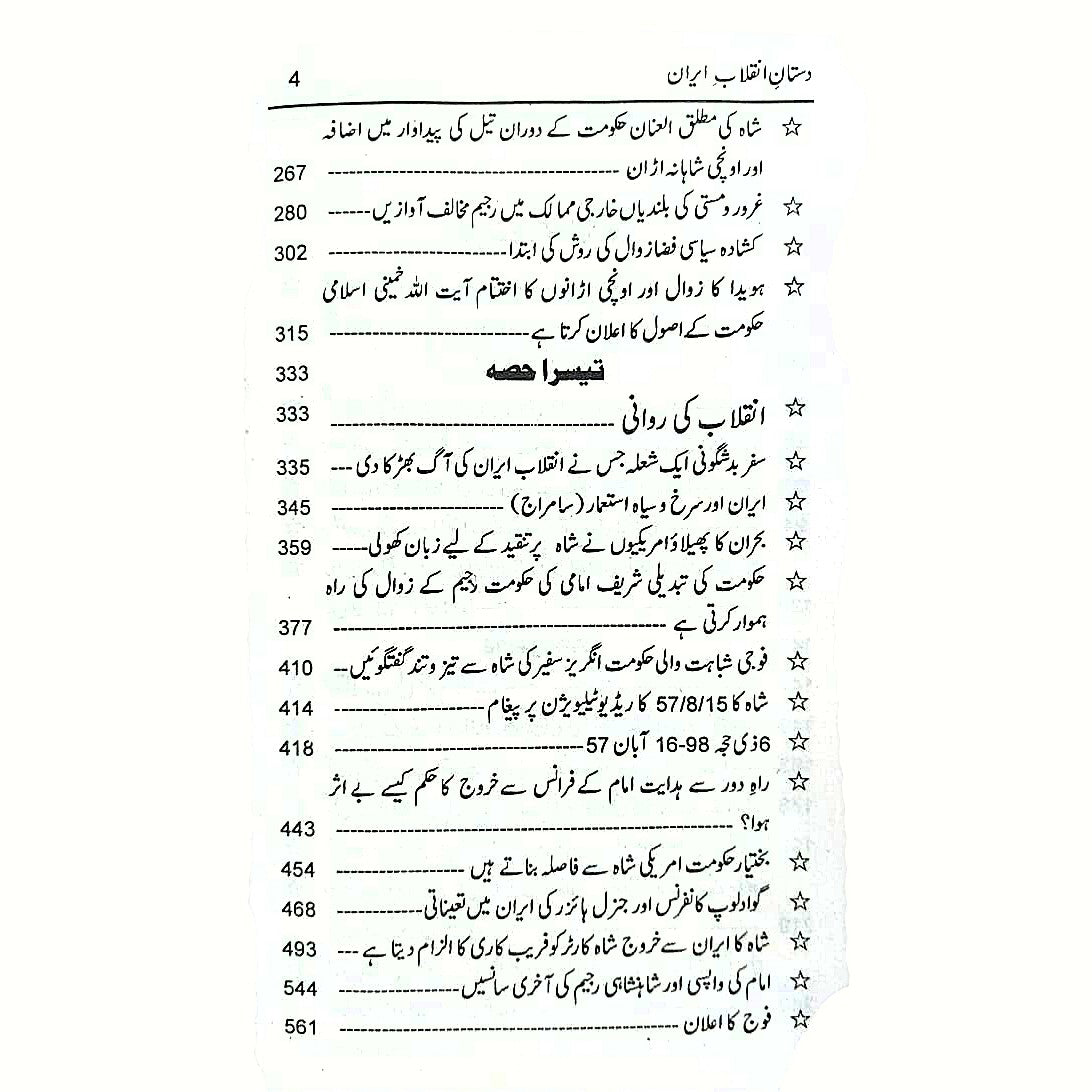 دستانِ انقلابِ ایران 4
☆ شاہ کی مطلق العنان حکومت کے دوران تیل کی پیداوار میں اضافہ
اور اونچی شاہانہ اڑان ---------------------------------------- 267
☆ غرور ومستی کی بلندیاں خارجی ممالک میں رجیم مخالف آوازیں------ 280
☆ کشادہ سیاسی فضا زوال کی روش کی ابتدا------------------------- 302
☆ ہویدا کا زوال اور اونچی اڑانوں کا اختتام آیت اللہ خمینی اسلامی
حکومت کے اصول کا اعلان کرتا ہے---------------------------- 315
تیسرا حصہ 333
☆ انقلاب کی روانی ---------------------------------------- 333
☆ سفر بدشگونی ایک شعلہ جس نے انقلاب ایران کی آگ بھڑکا دی --- 335
☆ ایران اور سرخ و سیاہ استعمار (سامراج) ------------------------ 345
☆ بحران کا پھیلاؤ امریکیوں نے شاہ پر تنقید کے لیے زبان کھولی----- 359
☆ حکومت کی تبدیلی شریف امامی کی حکومت رجیم کے زوال کی راہ
ہموار کرتی ہے ----------------------------------------------- 377
☆ فوجی شباہت والی حکومت انگریز سفیر کی شاہ سے تیز وتند گفتگوئیں-- 410
☆ شاہ کا 57/8/15 کا ریڈیو ٹیلیویژن پر پیغام--------------------- 414
☆ 6ذی حجہ 98-16 آبان 57----------------------------------- 418
☆ راہِ دور سے ہدایت امام کے فرانس سے خروج کا حکم کیسے بے اثر
ہوا؟ -------------------------------------------------------- 443
☆ بختیار حکومت امریکی شاہ سے فاصلہ بناتے ہیں ------------------ 454
☆ گوادلوپ کانفرنس اور جنرل ہائزر کی ایران میں تعیناتی------------ 468
☆ شاہ کا ایران سے خروج شاہ کارٹر کو فریب کاری کا الزام دیتا ہے --- 493
☆ امام کی واپسی اور شاہنشاہی رجیم کی آخری سانسیں----------------- 544
☆ فوج کا اعلان ----------------------------------------------- 561